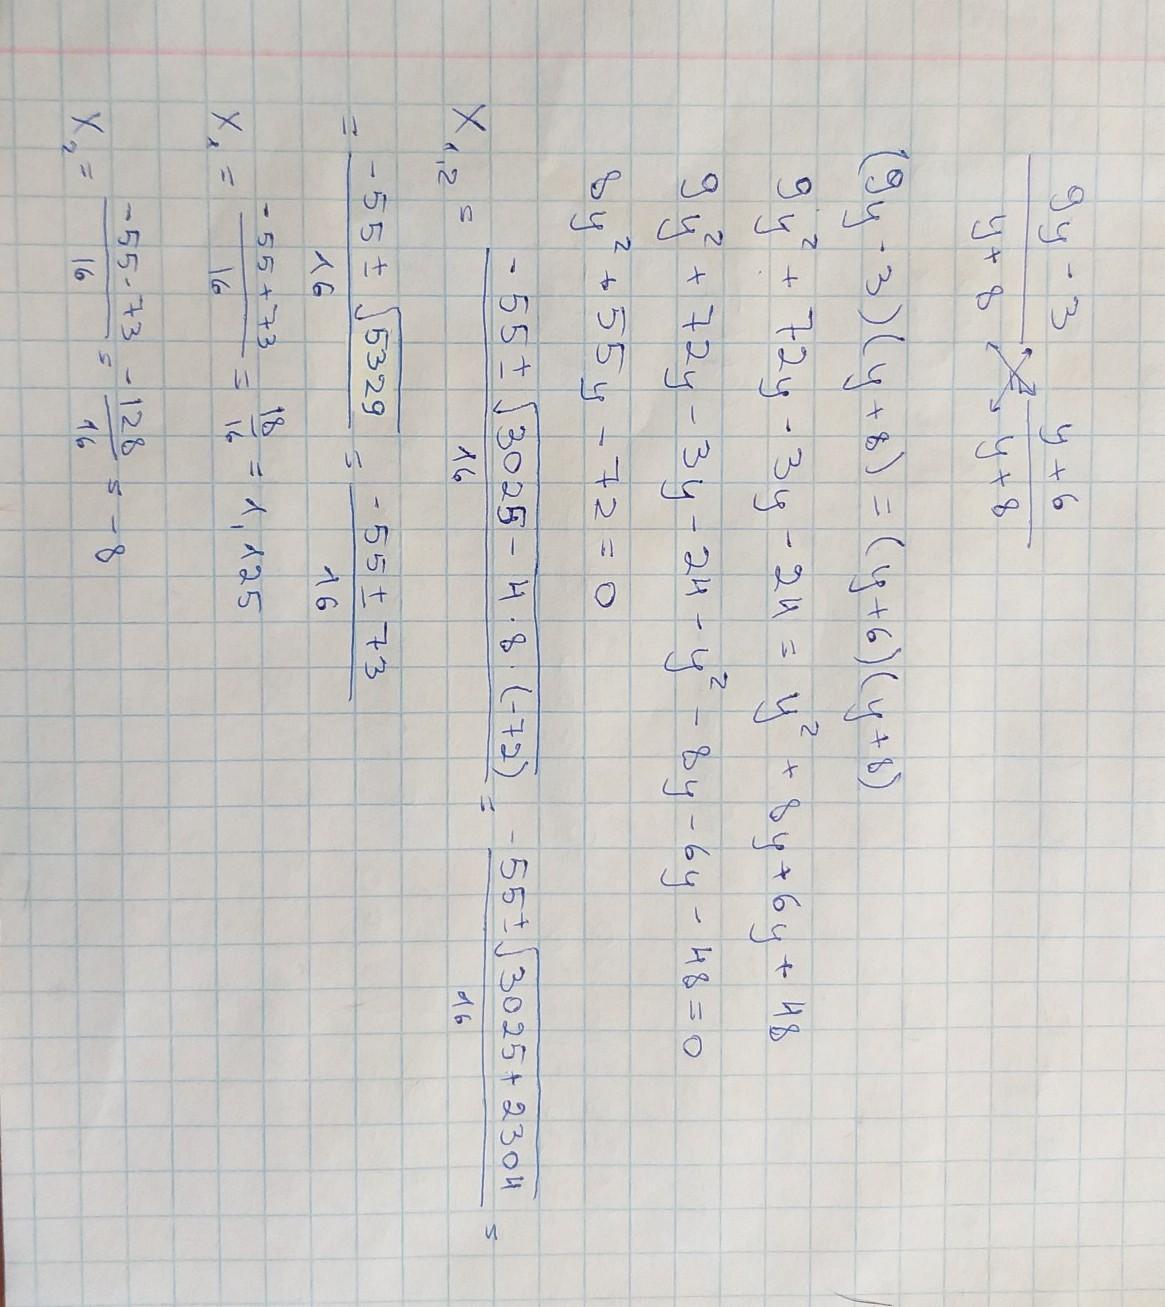 9y - 3 / y + 8 = y + 6 / y + 8
(9y - 3)(y + 8) = (y + 6)(y + 8)
9y² + 72y - 3y - 24 = y² + 8y + 6y + 48
9y² + 72y - 3y - 24 - y² - 8y - 6y - 48 = 0
8y² + 55y - 72 = 0
X₁,₂ = -55 ± √3025 - 4 · 8 · (-72) / 16 = -55 ± √3025 + 2304 / 16 =
= -55 ± √5329 / 16 = -55 ± 73 / 16
X₁ = -55 + 73 / 16 = 18 / 16 = 1,125
X₂ = -55 - 73 / 16 = -128 / 16 = -8